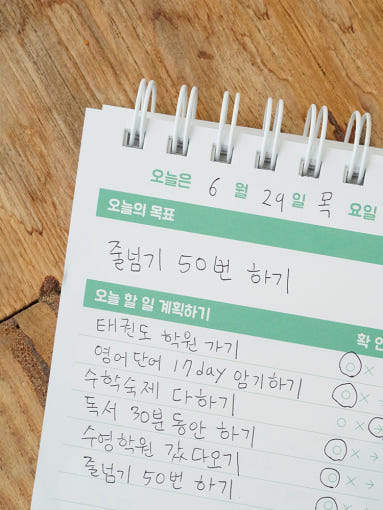 오늘은 6 월 29 일 목 요일
오늘의 목표
줄넘기 50번 하기
오늘 할 일 계획하기 확인
태권도 학원 가기
영어단어 17day 암기하기 ○ × →
수학숙제 다하기 ○ × →
독서 30분 동안 하기 ○ × →
수영학원 갔다오기 ○ × →
줄넘기 50번 하기 ○ × →
○ ×